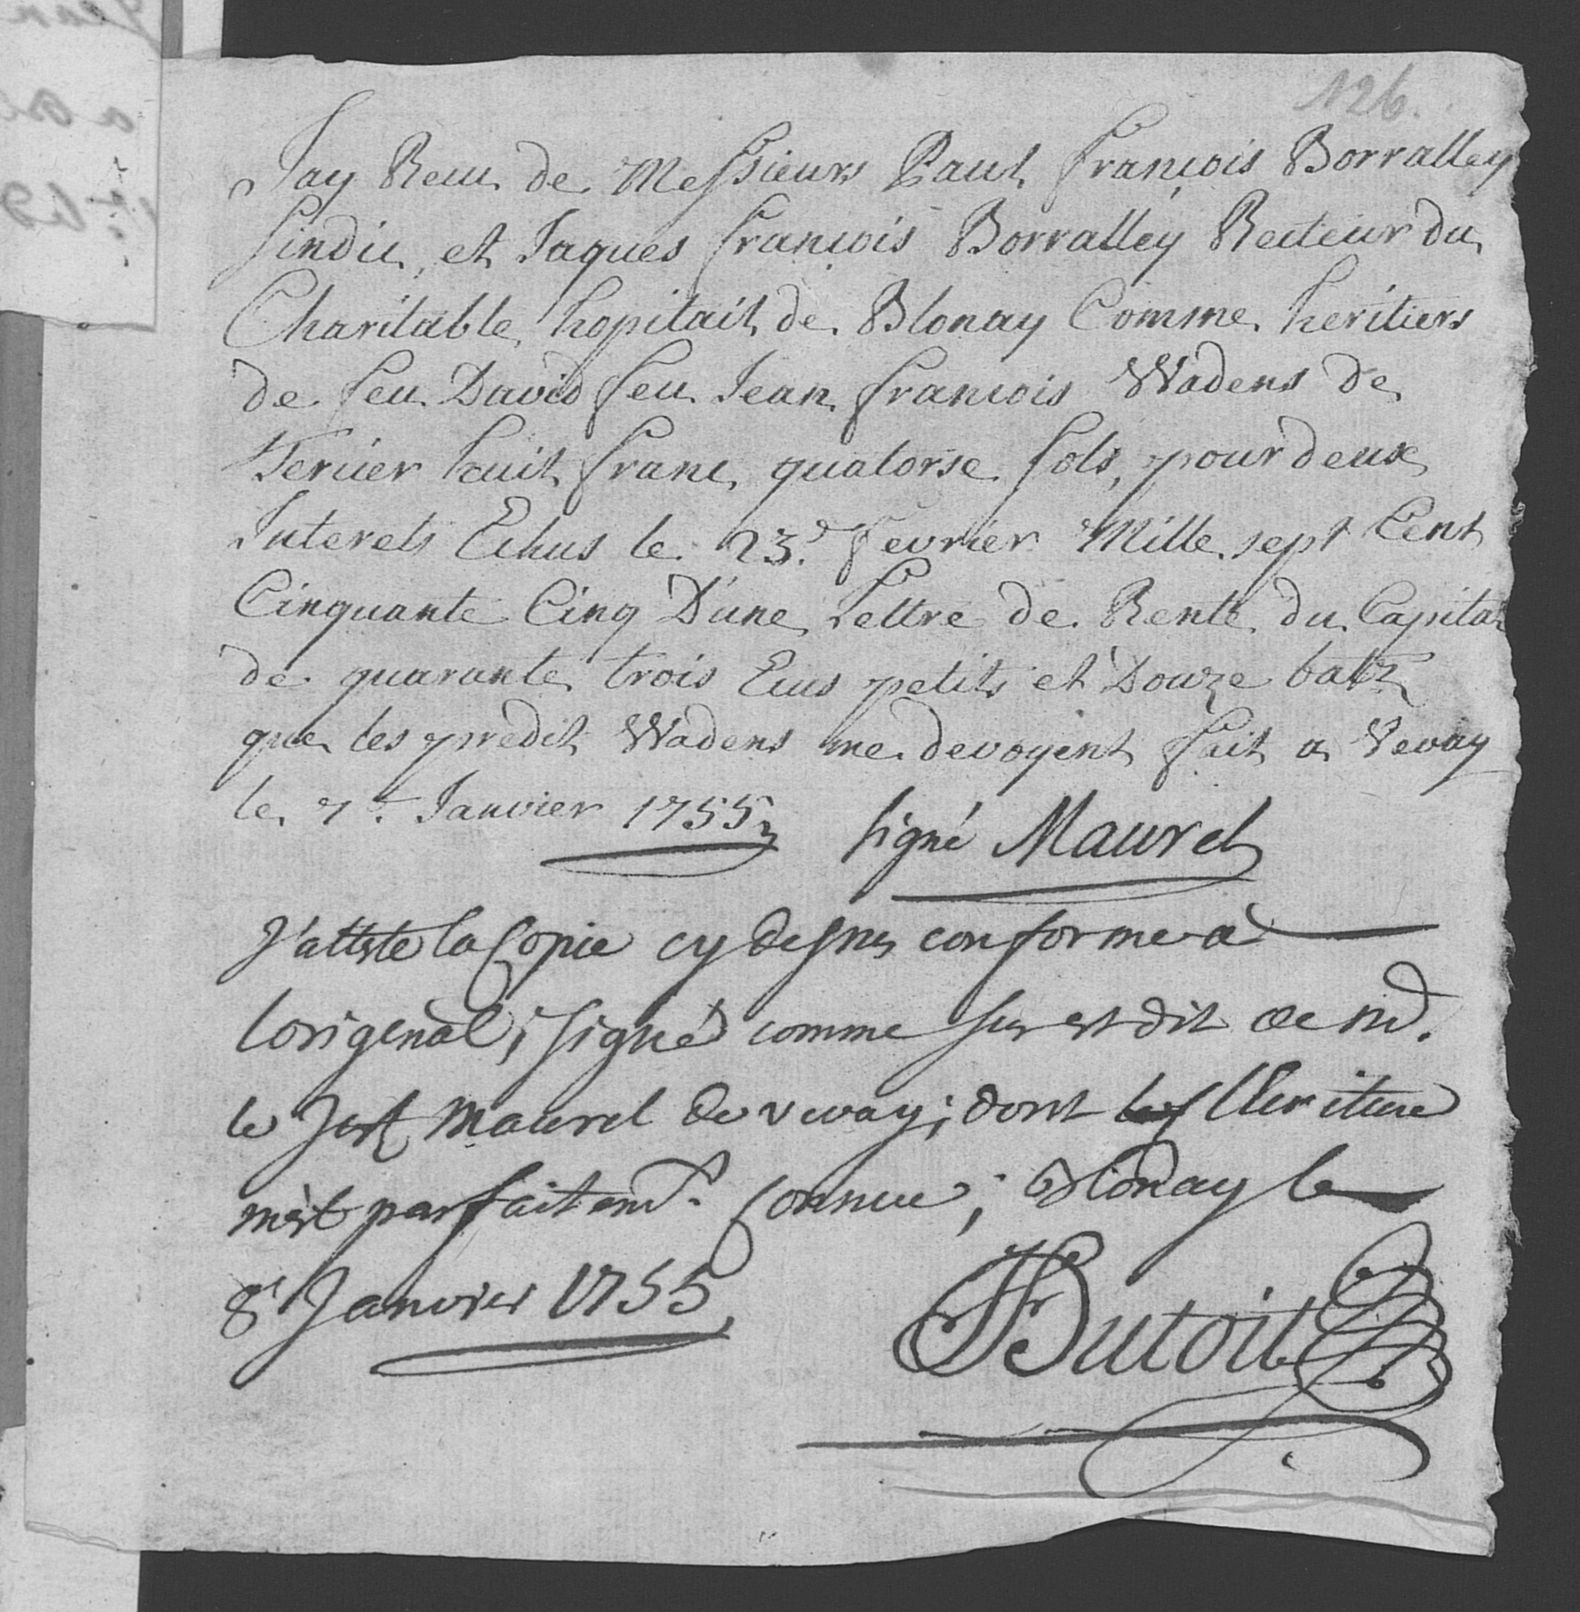 126.
Jay Receu de Messieurs Paul François Borralley
Sindic, et Jaques François Borralley Recteur du
Charitable hopitait de Blonay Comme heritiers
de feu David feu Jean François Wadens de
Tercier huit franc quatorse sols, pour deux
Interets Echus le 23.e fevrier Mille sept Cent
Cinquante Cinq D'une Lettre de Rente du Capital
de quarante trois Ecus petits et Douze batz
que les predit Wadens me devoyent fait a Vevay
le 7.e Janvier 1755 signé Maurel
J'atteste la Copie cy dessus conforme à
lorigenal, signée comme sus est dit de
le Maurel de vevay; dont l'Ecriture
m'est parfaitemt. Connue; Blonay le
8e Janvier 1755
Dutoit